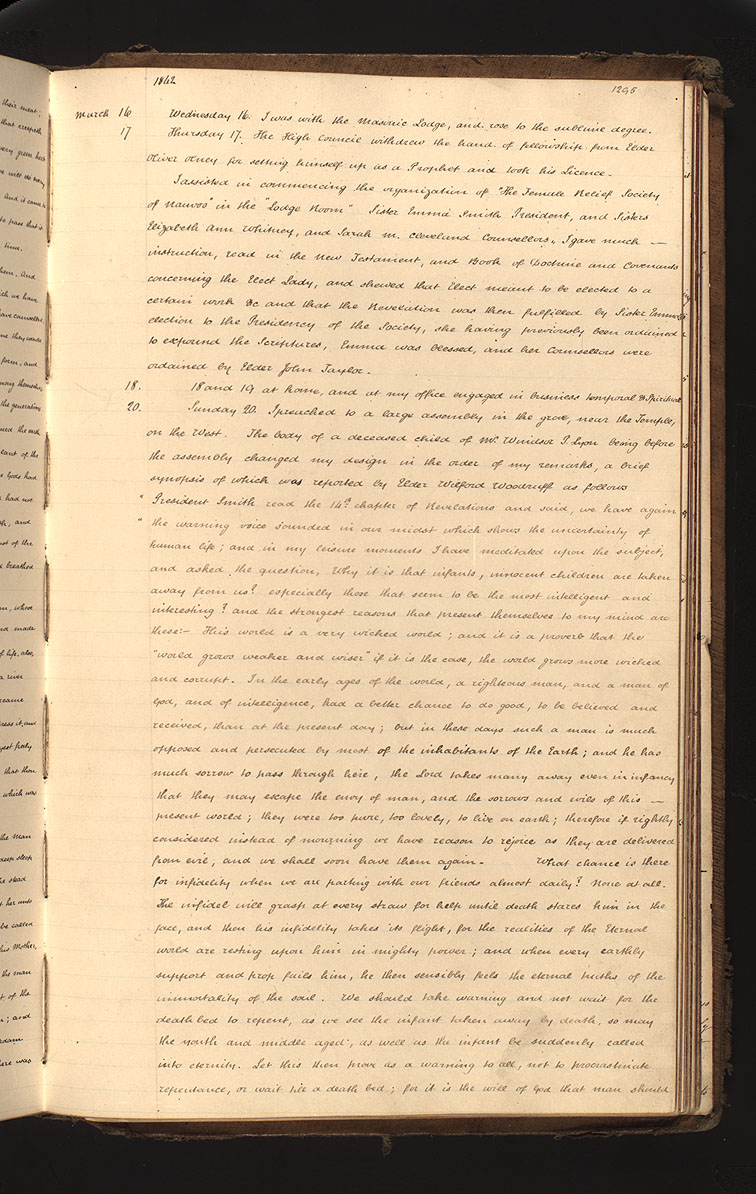 1842 1295
March 16 Wednesday 16. I was with the Masonic Lodge, and rose to the sublime degree.
17 Thursday 17. The High Council withdrew the hand of fellowship from Elder
Oliver Olney for setting himself up as a Prophet and took his Licence.
I assisted in commencing the organization of "The Female Relief Society
of Nauvoo" in the "Lodge Room" Sister Emma Smith President, and Sisters
Elizabeth Ann Whitney, and Sarah M. Cleveland Counsellors, I gave much —
instruction, read in the New Testament, and Book of Doctrine and Covenants
concerning the Elect Lady, and shewed that Elect meant to be elected to a
certain work &c and that the Revelation was then fulfilled by Sister Emma's
election to the Presidency of the Society, she having previously been ordained
to expound the Scriptures, Emma was blessed, and her Counsellors were
ordained by Elder John Taylor.
18. 18 and 19 at home, and at my office engaged in business temporal & Spiritual
20. Sunday 20. I preached to a large assembly in the grove, near the Temple,
on the West. The body of a deceased child of Mr. Windsor P. Lyon being before
the assembly changed my design in the order of my remarks, a brief
synopsis of which was reported by Elder Wilford Woodruff as follows
" President Smith read the 14th chapter of Revelations and said, we have again
" the warning voice sounded in our midst which shows the uncertainty of
human life; and in my leisure moments I have meditated upon the subject,
and asked the question, Why it is that infants, innocent children are taken
away from us? especially those that seem to be the most intelligent and
interesting? and the strongest reasons that present themselves to my mind are
these:— This world is a very wicked world; and it is a proverb that the
"world grows weaker and wiser" if it is the case, the world grows more wicked
and corrupt. In the early ages of the world, a righteous man, and a man of
God, and of intelligence, had a better chance to do good, to be believed and
received, than at the present day; but in these days such a man is much
opposed and persecuted by most of the inhabitants of the Earth; and he has
much sorrow to pass through here, the Lord takes many away even in infancy
that they may escape the envy of man, and the sorrows and evils of this —
present world; they were too pure, too lovely, to live on earth; therefore if rightly
considered instead of mourning we have reason to rejoice as they are delivered
from evil, and we shall soon have them again. What chance is there
for infidelity when we are parting with our friends almost daily? None at all.
The infidel will grasp at every straw for help until death stares him in the
face, and then his infidelity takes its flight, for the realities of the Eternal
world are resting upon him in mighty power; and when every earthly
support and prop fails him, he then sensibly feels the eternal truths of the
immortality of the soul. We should take warning and not wait for the
death bed to repent, as we see the infant taken away by death, so may
the youth and middle aged, as well as the infant be suddenly called
into eternity. Let this then prove as a warning to all, not to procrastinate
repentance, or wait till a death bed; for it is the will of God that man should